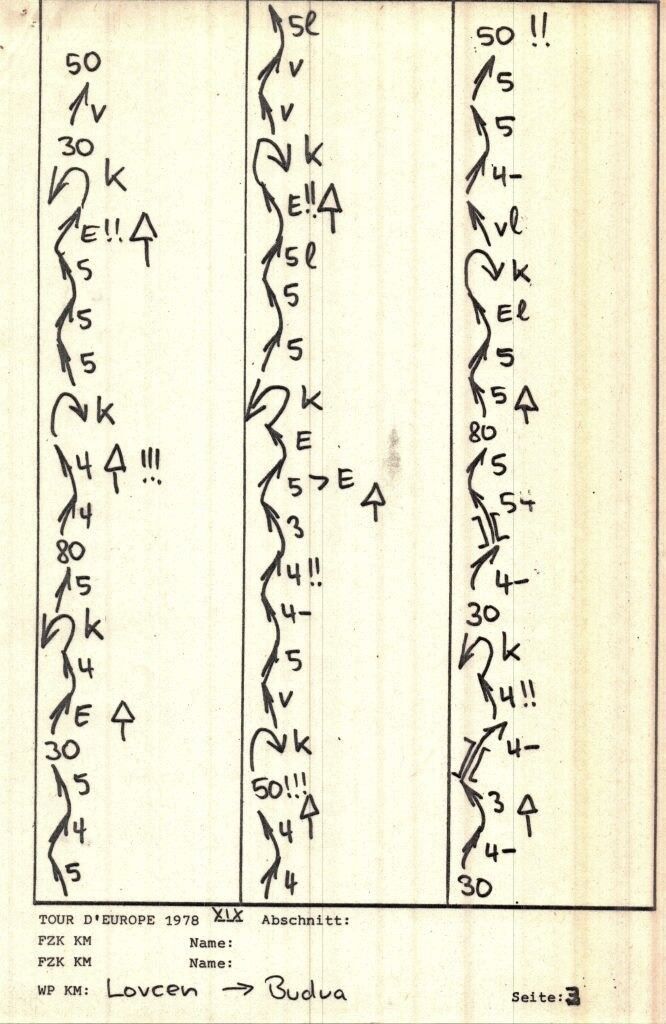 50
v
30
k
E!!
5
5
5
k
4 !!!
4
80
5
k
4
E
30
5
4
5
5l
v
v
k
E!!
5l
5
5
k
E
5 > E
3
4!!
4-
5
v
k
50!!!
4
4
50 !!
5
5
4-
vl
k
El
5
5
80
5
4-
30
k
4!!
4-
3
4-
30
TOUR D'EUROPE 1978 XIX Abschnitt:
FZK KM Name:
FZK KM Name:
WP KM: Lovcen → Budva
Seite:3